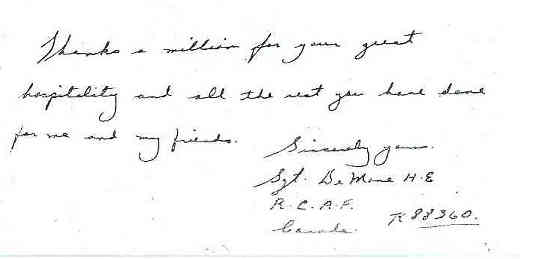 Thanks a million for your great
hospitality and all the rest you have done
for me and my friends.
Sincerely yours.
Sgt. De Mone H.E
R.C.A.F.
Canada. R 88360.